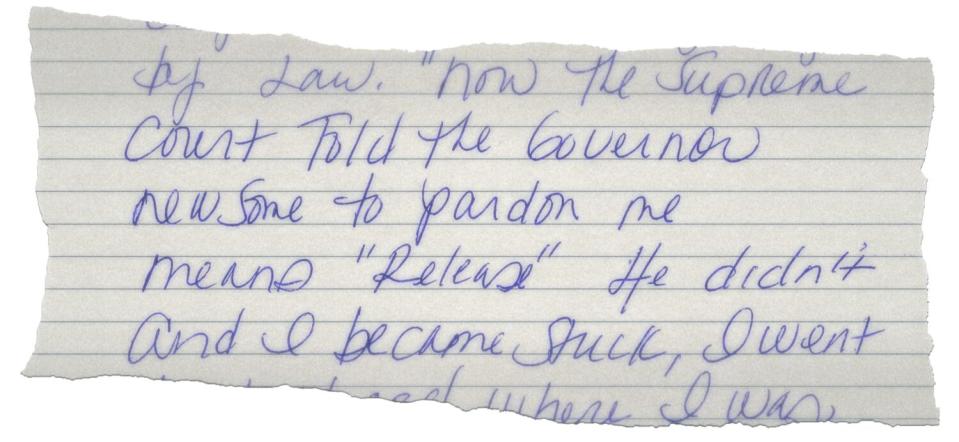 by Law. "now the Supreme
Court Told the Governor
newsome to pardon me
means "Release" He didn't
and I became Stuck, I went
where I was